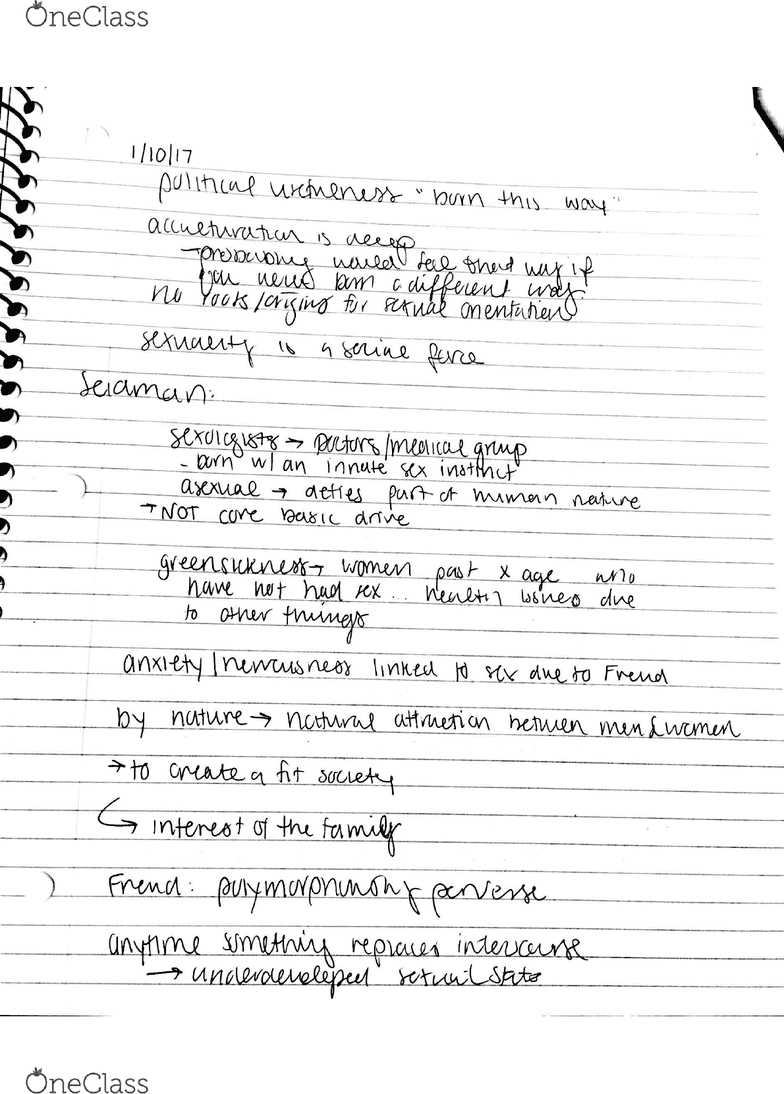 OneClass
1/10/17
political usefulness "born this way"
acculturation is deep
would feel that way if
you were born a different way
no roots/origins for sexual orientation
sexuality is a social force
Seidman:
sexologists → Doctors/medical group
- born w/ an innate sex instinct
asexual → defies part of human nature
→ NOT core basic drive
greensickness → women past x age who
have not had sex... health issues due
to other things
anxiety/nervousness linked to sex due to Freud
by nature → natural attraction between men & women
→ to create a fit society
→ interest of the family
Freud: polymorphously perverse
anytime something replaces intercourse
→ underdeveloped sexual state
OneClass